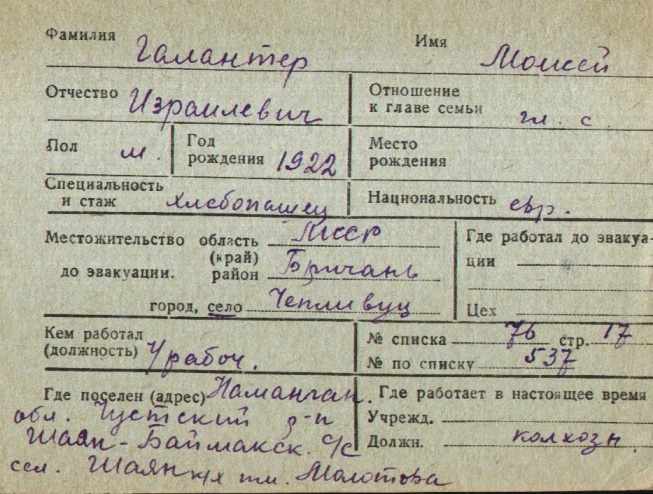 Фамилия Галантер Имя Моисей
Отчество Израилевич Отношение к главе семьи гл. с.
Пол м. Год рождения 1922 Место рождения
Специальность и стаж хлебопашец Национальность евр.
Местожительство область (край) МССР Где работал до эвакуа-
до эвакуации. район Бричань ции
город, село Чепливуц Цех
Кем работал (должность) Чрабоч. № списка 76 стр. 17
№ по списку 537
Где поселен (адрес) Наманган. Где работает в настоящее время
обл. Чустский р-н Учрежд.
Шаян-Баймакск. с/с Должн. колхозн.
сел. Шаян к/х им. Молотова